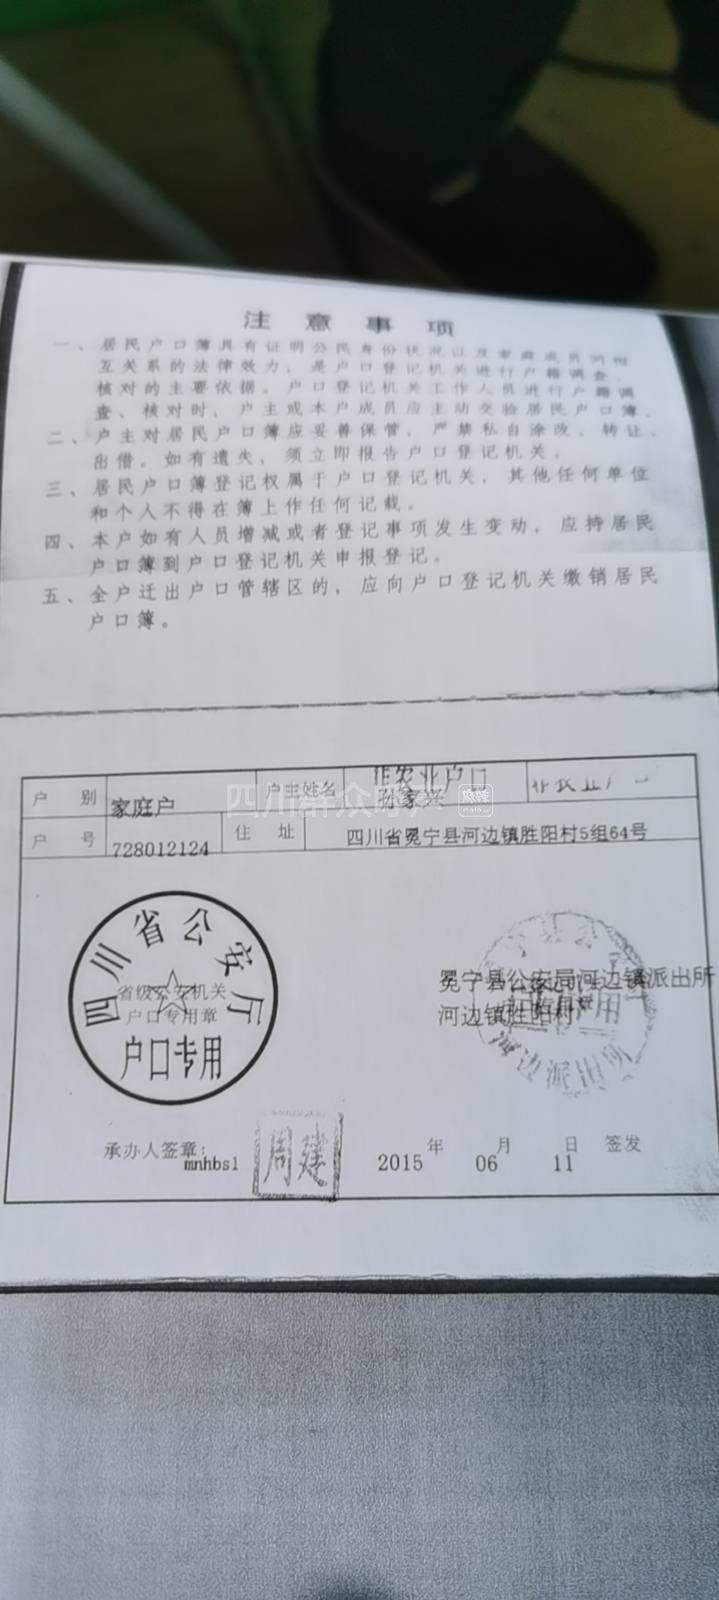 注意事项
一、居民户口簿具有证明公民身份状况以及家庭成员间相
互关系的法律效力，是户口登记机关进行户籍调查、
核对的主要依据。户口登记机关工作人员进行户籍调
查、核对时，户主或本户成员应主动交验居民户口簿。
二、户主对居民户口簿应妥善保管，严禁私自涂改、转让、
出借。如有遗失，须立即报告户口登记机关。
三、居民户口簿登记权属于户口登记机关，其他任何单位
和个人不得在簿上作任何记载。
四、本户如有人员增减或者登记事项发生变动，应持居民
户口簿到户口登记机关申报登记。
五、全户迁出户口管辖区的，应向户口登记机关缴销居民
户口簿。
非农业户口
户别 家庭户 户主姓名 孙家兴
户号 728012124 住址 四川省冕宁县河边镇胜阳村5组64号
四川省公安厅
省级公安机关
户口专用章
户口专用
冕宁县公安局河边镇派出所
河边镇胜阳村
河边派出所
承办人签章：mnhbsl 周建 2015年06月11日签发
四川群众呼声
麻辣